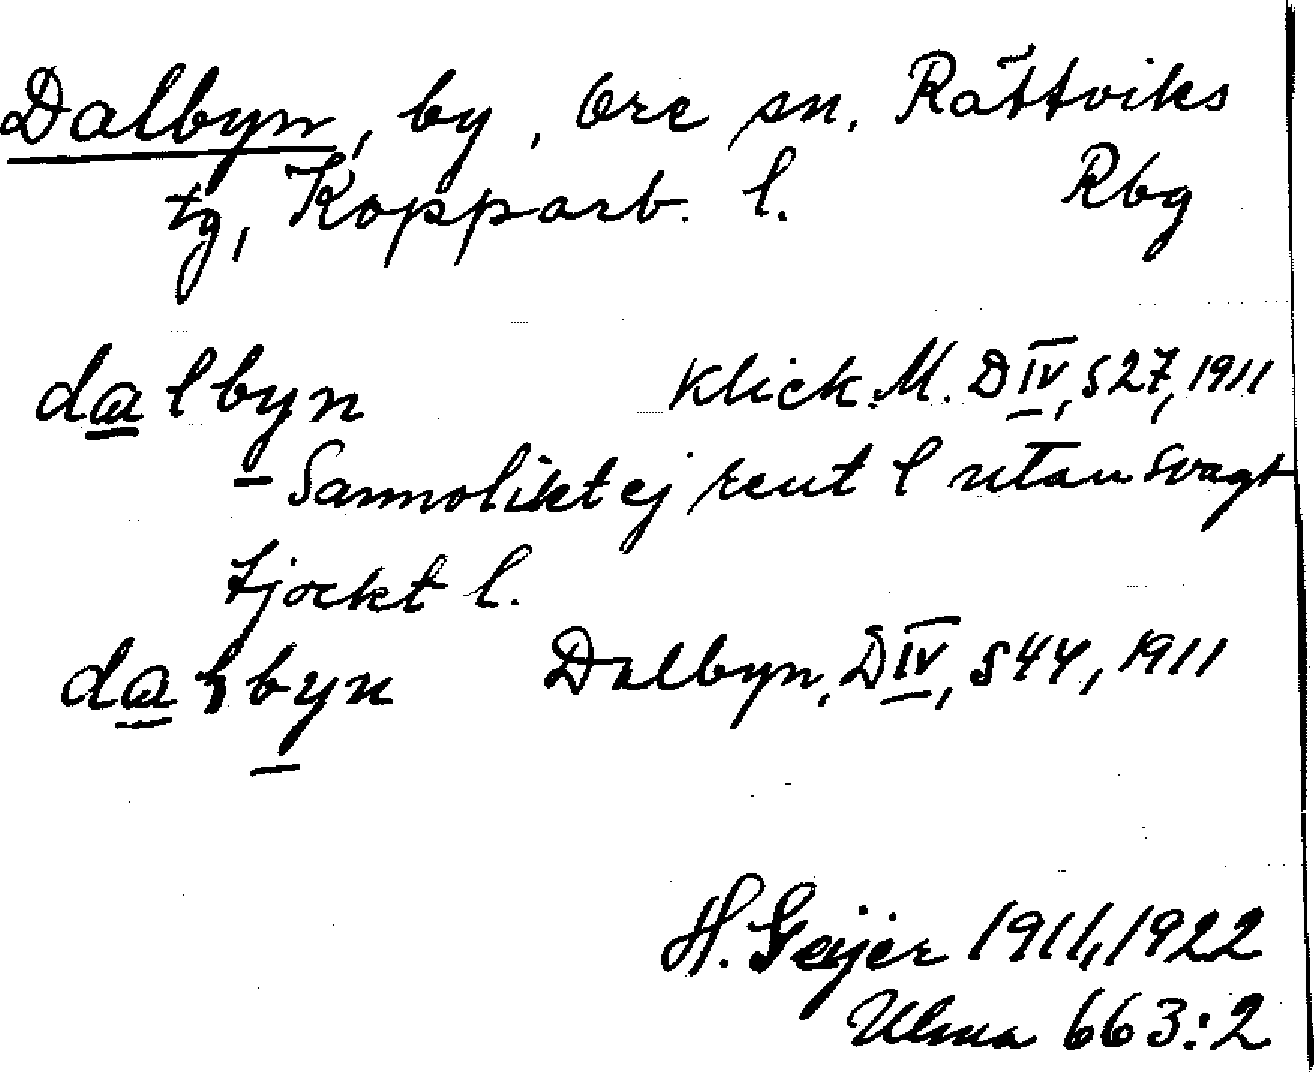 Dalbyn, by, Ore sn. Rättviks
tg, Kopparb. l. Rbg
dalbyn Klick. M. D IV, S 27, 1911
- Sannolikt ej rent l utan svagt
tjockt l.
dalbyn Dalbyn, D IV, S 44, 1911
H. Geijer 1911, 1922
Ulma 663:2